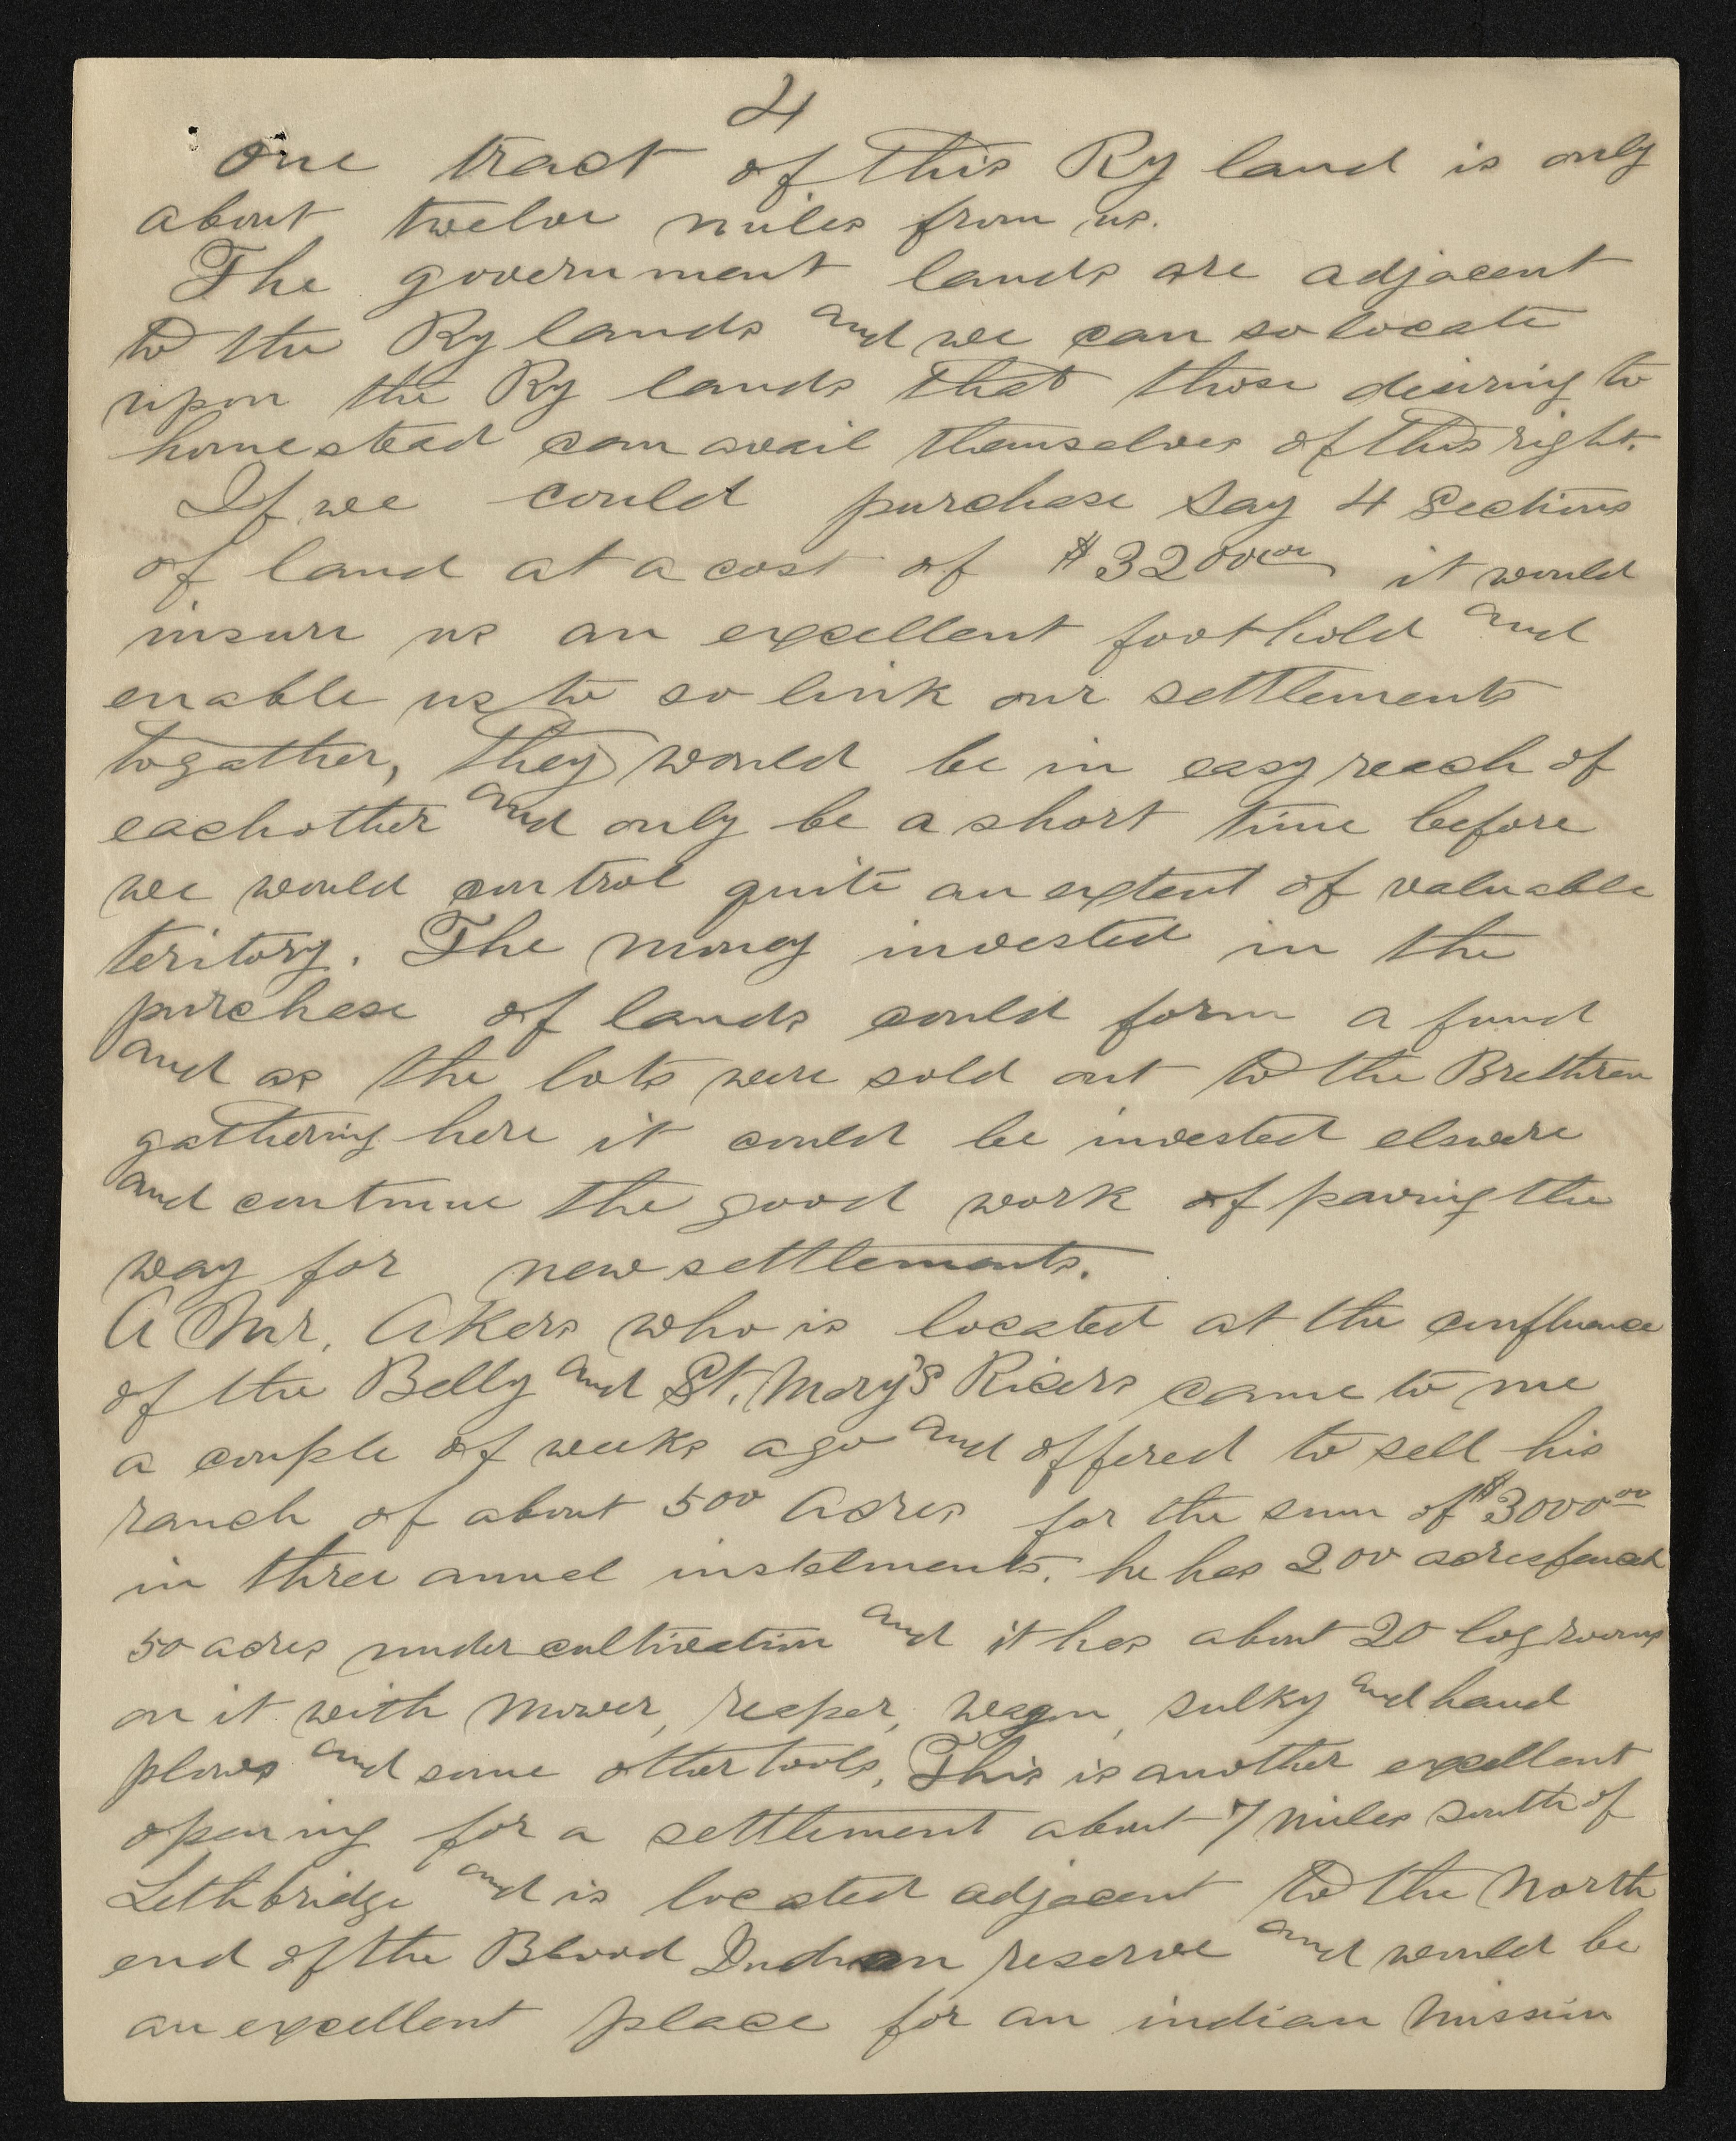 4
One tract of this Ry land is only
about twelve miles from us.
The government lands are adjacent
to the Ry lands and we can so locate
upon the Ry lands that those desiring to
homestead can avail themselves of this right.
If we could purchase say 4 Sections
of land at a cost of $3200.00 it would
insure us an excellent foothold and
enable us to so link our settlements
togather, they would be in easy reach of
eachother and only be a short time before
we would control quite an extent of valuable
teritory. The money invested in the
purchase of lands could form a fund
and as the lots were sold out to the Brethren
gathering here it could be invested elswere
and continue the good work of paving the
way for new settlements.
A Mr. Akers who is located at the confluence
of the Belly and St. Mary's Rivers came to me
a couple of weeks ago and offered to sell his
ranch of about 500 acres for the sum of $3000.00
in three annuel instalments. he has 200 acres fenced
50 acres under cultivation and it has about 20 log rooms
on it with mower, reaper, wagon, sulky and hand
plows and some other tools. This is another excellent
opening for a settlement about 7 miles south of
Lethbridge and is located adjacent to the North
end of the Blood Indian reserve and would be
an excellent place for an indian mission